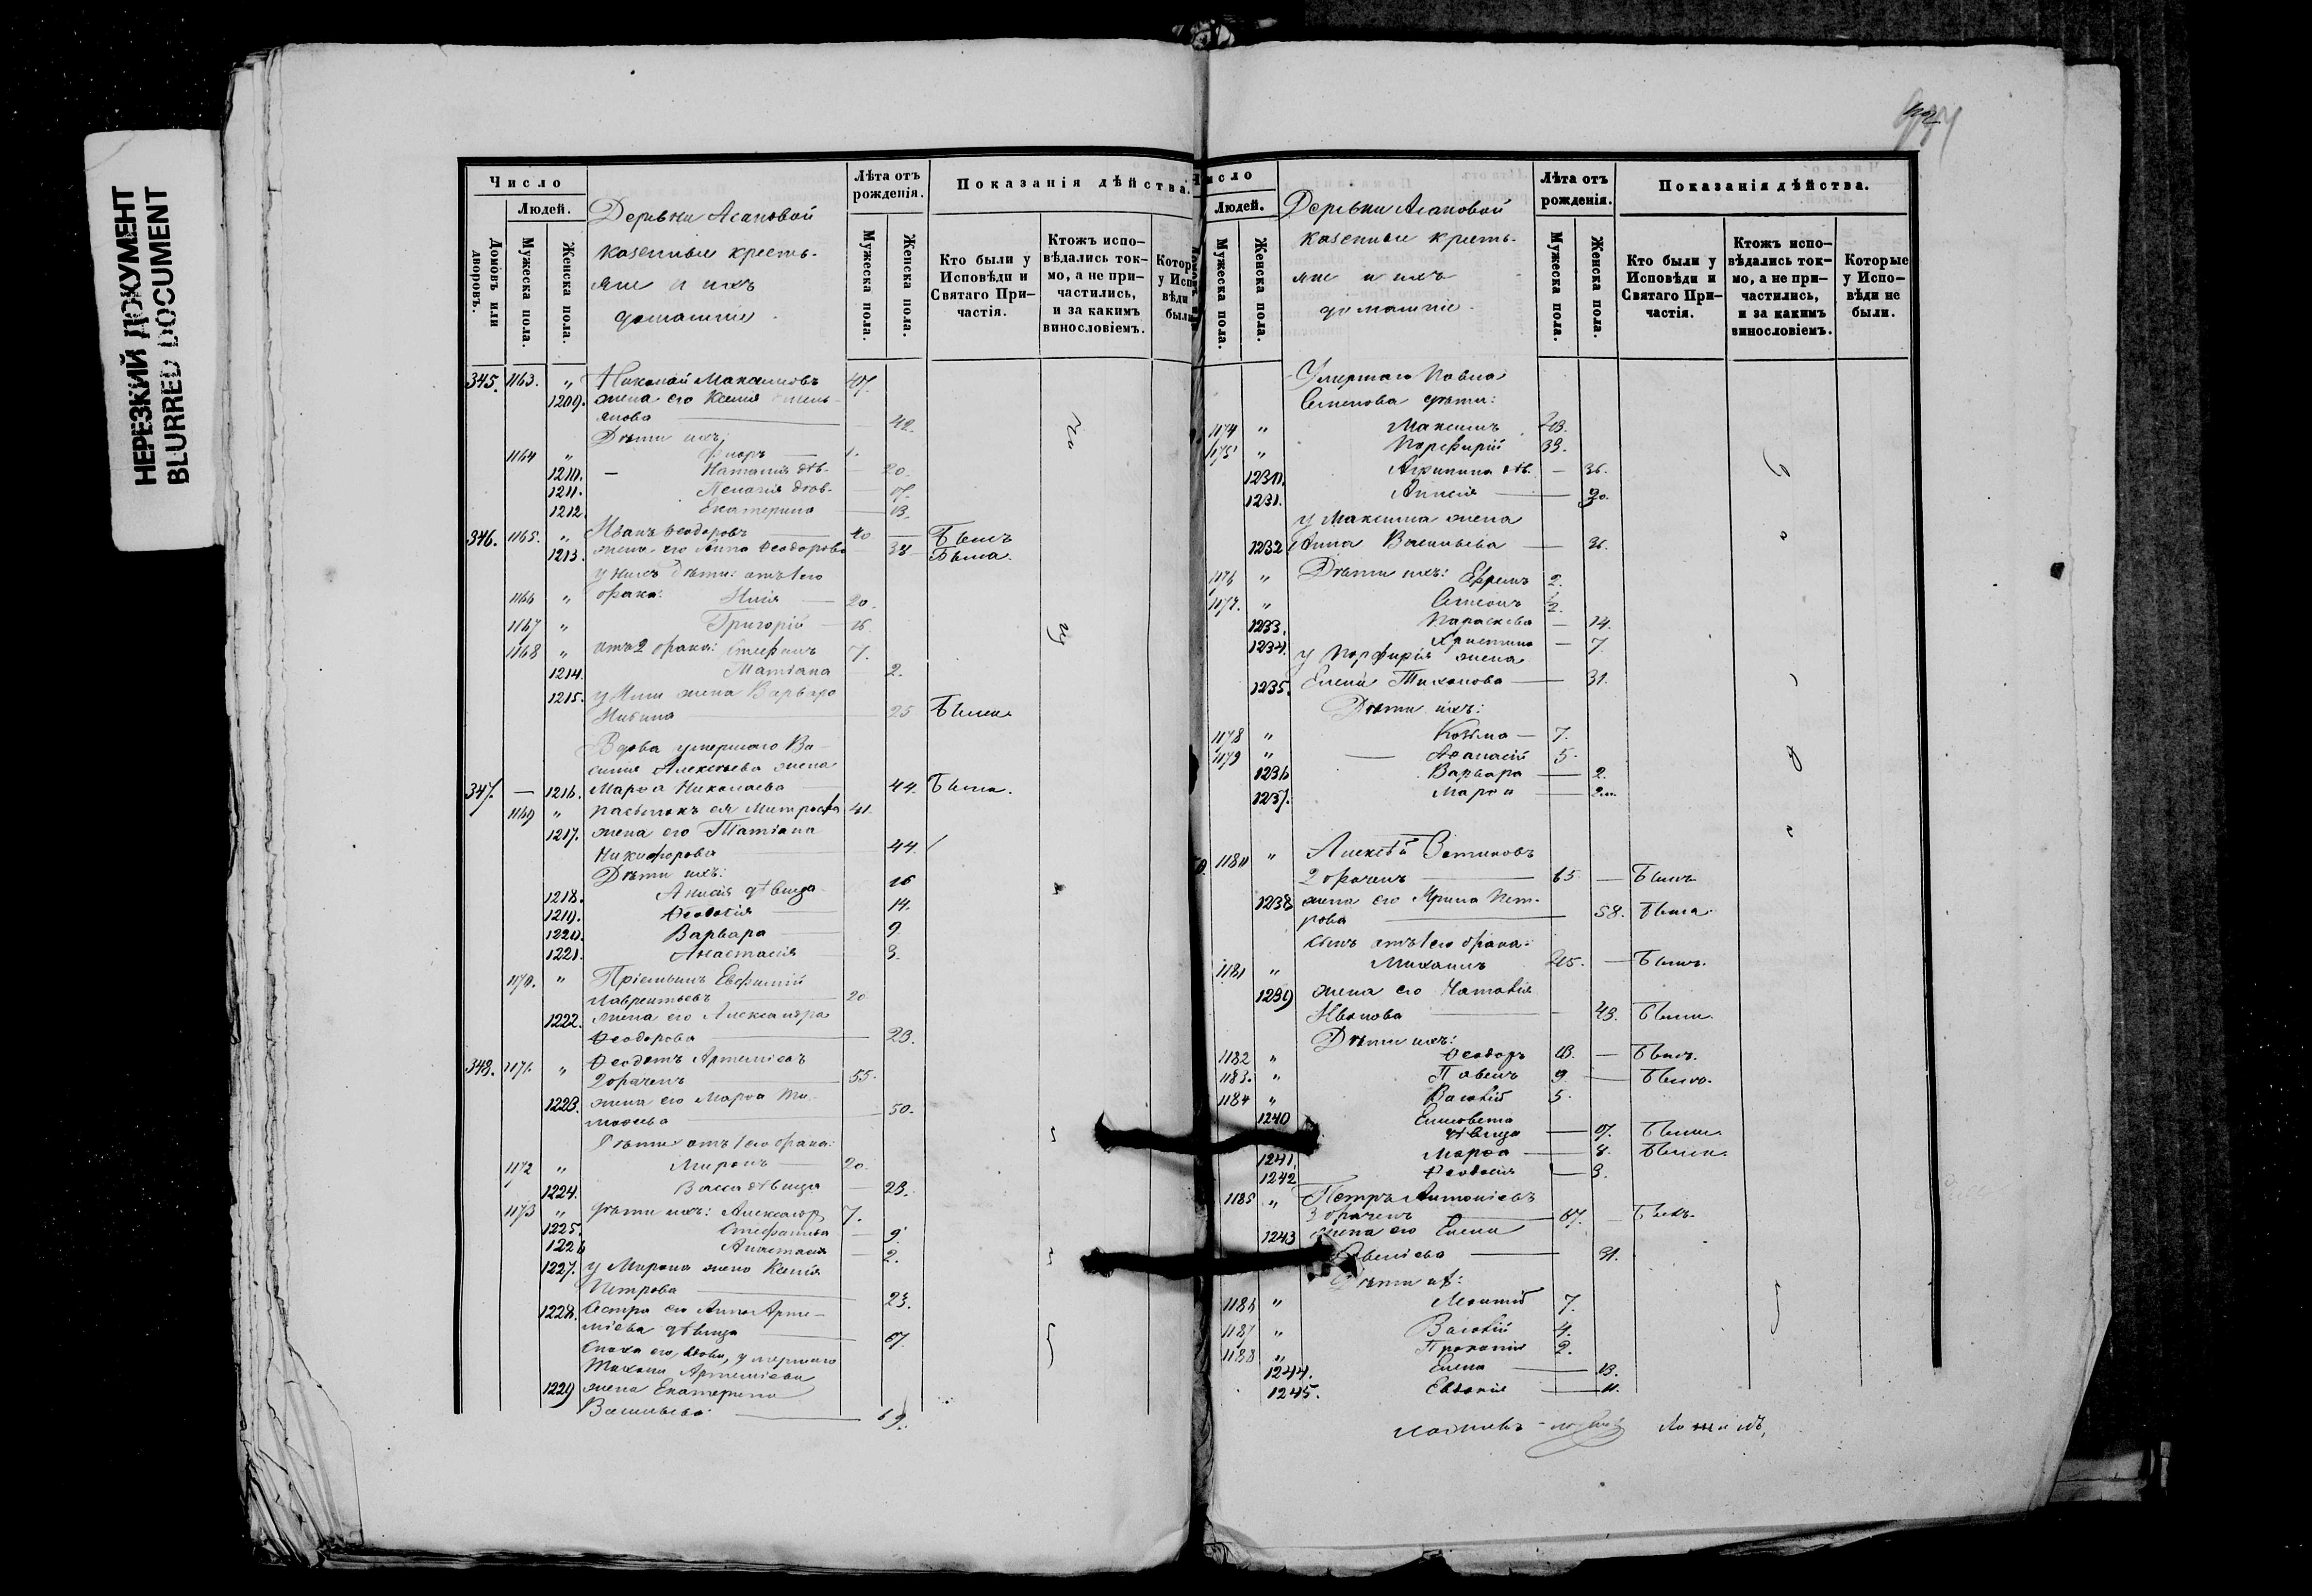 НЕРЕЗКИЙ ДОКУМЕНТ
BLURRED DOCUMENT
Число
Людей.
Домовъ или дворовъ.
Мужеска пола.
Женска пола.
Деревни Асановой
казенные кресть-
яне и ихъ
домашніе
Лѣта отъ рожденія.
Мужеска пола.
Женска пола.
Показанія дѣйства.
Кто были у Исповѣди и Святаго При-частія.
Ктожъ испо-вѣдались ток-мо, а не при-частились, и за какимъ винословіемъ.
Котор у Исп вѣди были
345. 1163. " Николай Максимовъ 47.
1209. жена его Ксенія
42.
Дѣти ихъ:
1164 " Флоръ 1.
1210. — Наталія дѣв. — 20.
1211. Пелагія дѣв. — 17.
1212. Екатерина — 13.
346. 1165. " Иванъ Ѳеодоровъ 40 — Былъ
1213. жена его Анна Ѳеодорова 38 Была.
у нихъ дѣти: отъ 1го
1166 " брака: Илія — 20.
1167 " Григорій — 16.
1168 " отъ 2 брака: Стефанъ 7.
1214. Татіана — 2.
1215. у Иліи жена Варвара
25 Была.
Вдова умершаго Ва-
силія Алексѣева жена
347. — 1216. Марѳа Николаева — 44. Была.
1169 " пасынокъ ея 41.
1217. жена его Татіана
Никифорова 44.
Дѣти ихъ:
1218. Анисія дѣвица 16
1219. Ѳеодосія — 14.
1220. Варвара — 9.
1221. Анастасія 3.
1170. " Пріемышъ Евфимій
Лаврентьевъ — 20
1222. жена его Александра
Ѳеодорова — 23.
348. 1171. " Ѳеодотъ Артеміевъ
2 браченъ — 55.
1223. жена его Марѳа Ти-
моѳеева — 50.
Дѣти отъ 1го брака:
1172 " Миронъ — 20.
1224. Васса дѣвица — 23.
1173 " дѣти ихъ: Александр 7.
1225. Стефанида — 9.
1226 Анастасія — 2.
1227. у Мирона жена Ксенія
Петрова — 23.
1228. Сестра его Анна Арте-
міева дѣвица — 67.
Сноха его, вдова, умершаго
Тихона Артеміева
1229 жена Екатерина
Васильева — 69.
Число
Людей.
Мужеска пола.
Женска пола.
Деревни Асановой
казенные кресть-
яне и ихъ
домашніе.
Лѣта отъ рожденія.
Мужеска пола.
Женска пола.
Показанія дѣйства.
Кто были у Исповѣди и Святаго При-частія.
Ктожъ испо-вѣдались ток-мо, а не при-частились, и за какимъ винословіемъ.
Которые у Испо-вѣди не были.
Умершаго Павла
Семенова дѣти:
1174 " Максимъ 43.
1175 " Порфирій 33.
1230. Агрипина дѣв. — 36.
1231. Аннсія — 30.
у Максима жена
1232. Анна Васильева — 36.
1176 " Дѣти ихъ: Ефремъ 2.
1177. " Семеонъ 1/2.
1233. Параскева — 14.
1234. Христина — 7.
у Порфирія жена
1235. Елена Тихонова — 31.
Дѣти ихъ:
1178 " Козьма — 7.
1179 " — Аѳанасій 5.
1236 Варвара — 2.
1237. Марѳа
1180 " Алексѣй
2 браченъ — 65 — Былъ
1238 жена его Ирина Пет-
рова — 58. Была.
сынъ отъ 1го брака:
1181 " Михаилъ 45. — Былъ.
1239 жена его Наталія
Иванова — 43. Была.
Дѣти ихъ:
1182 " Ѳеодоръ 13. — Былъ.
1183. " Павелъ 9 — Былъ.
1184 " Василій 5.
1240 Елисовета
дѣвица — 17. Была.
1241. Марѳа — 8. Была.
1242 Ѳеодосія — 3.
1185 " Петръ Антоніевъ
3 браченъ — 47. — Былъ.
1243 жена его Елена
31.
Дѣти ихъ:
1186 " 7.
1187 " Василій 4.
1188 " Прокопій 2.
1244. Елена — 13.
1245. Евдокія — 11.